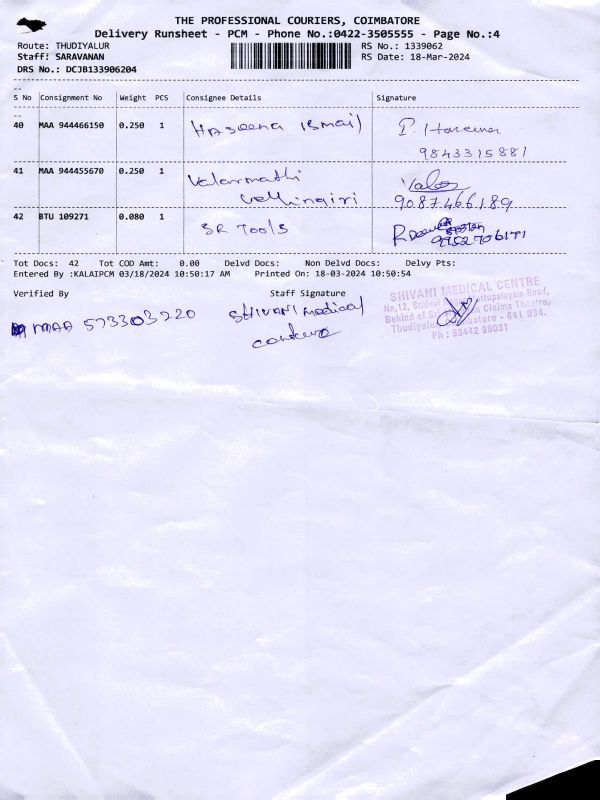 THE PROFESSIONAL COURIERS, COIMBATORE
Delivery Runsheet - PCM - Phone No.:0422-3505555 - Page No.:4
Route: THUDIYALUR RS No.: 1339062
Staff: SARAVANAN RS Date: 18-Mar-2024
DRS No.: DCJB133906204
S No Consignment No Weight PCS Consignee Details Signature
40 MAA 944466150 0.250 1 Haseena ismail
9843315881
41 MAA 944455670 0.250 1 Valarmathi
Vellingiri 9087466189
42 BTU 109271 0.080 1 SR Tools
9952706171
Tot Docs: 42 Tot COD Amt: 0.00 Delvd Docs: Non Delvd Docs: Delvy Pts:
Entered By :KALAIPCM 03/18/2024 10:50:17 AM Printed On: 18-03-2024 10:50:54
Verified By Staff Signature
MAA 573303220 SHIVANI medical
SHIVANI MEDICAL CENTRE
No,12, Sridevi
Behind of Cinima Theatre,
Thudiyalur, Coimbatore - 641 034.
Ph : 93442 98031